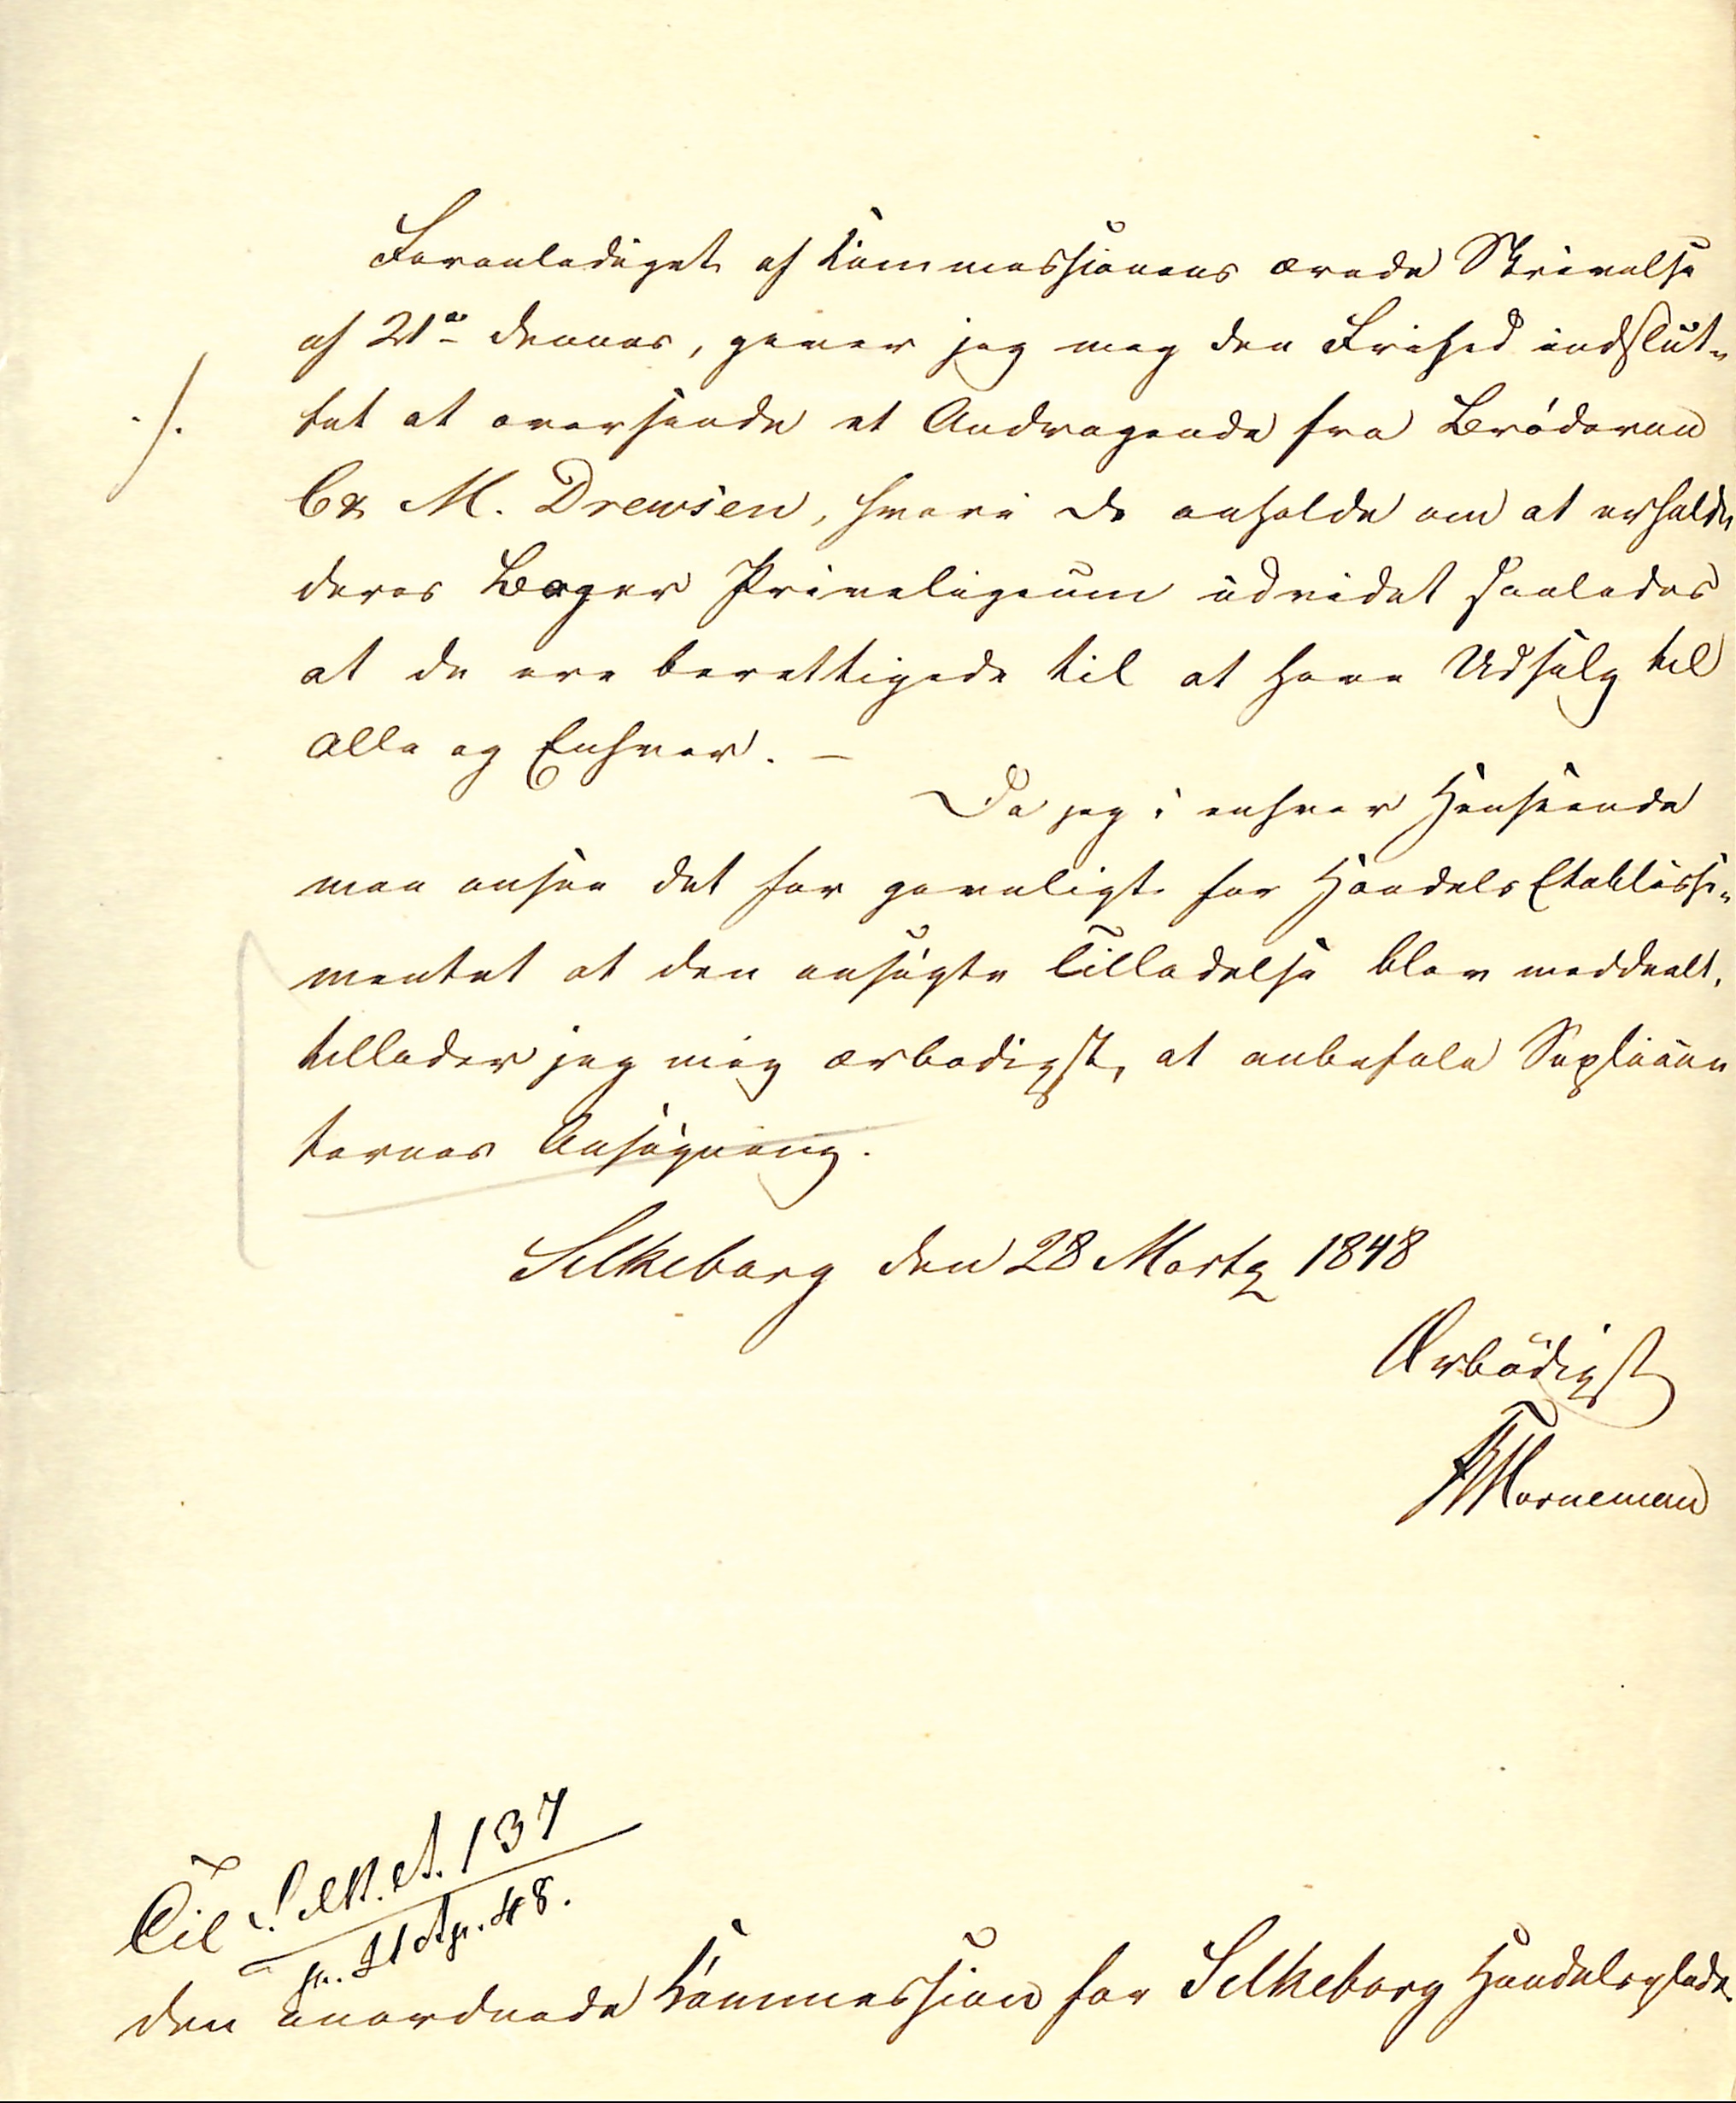 Foranlediget af Kommissionens ærede Skrivelse
af 21de dennes, giver jeg mig den Frihed indslut-
./.
tet at oversende et Andragende fra Brødrene
C & M. Drewsen, hvori de anholde om at erholde
deres Bager Privelegium udvidet saaledes
at de ere berettigede til at have Udsalg til
alle og Enhver. —
Da jeg i enhver Henseende
maa ansee det for gavnligt for Handels Etablisse-
mentet at den ansøgte Tilladelse blev meddeelt,
tillader jeg mig ærbødigst, at anbefale Suplican
ternes Ansøgning.
Silkeborg den 28 Martz 1848
Ærbødigst
Horneman
Silk. A. 137
Til
pr. 21 Apr. 48.
den anordnede Kommission for Silkeborg Handelsplads.